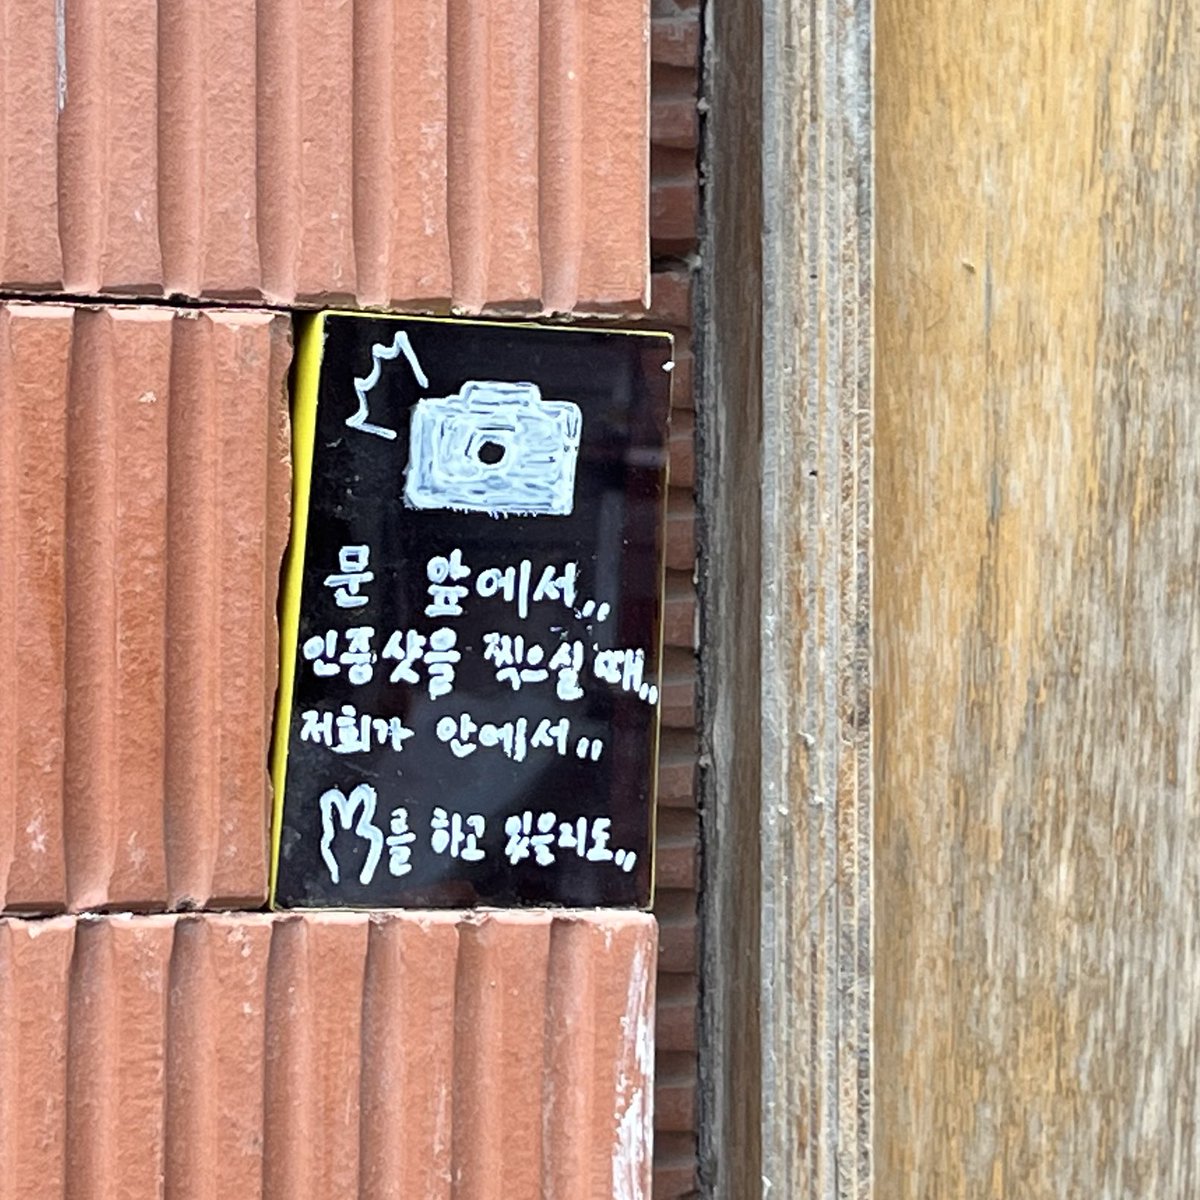 문 앞에서,,
인증샷을 찍으실 때,,
저희가 안에서,,
를 하고 있을지도,,